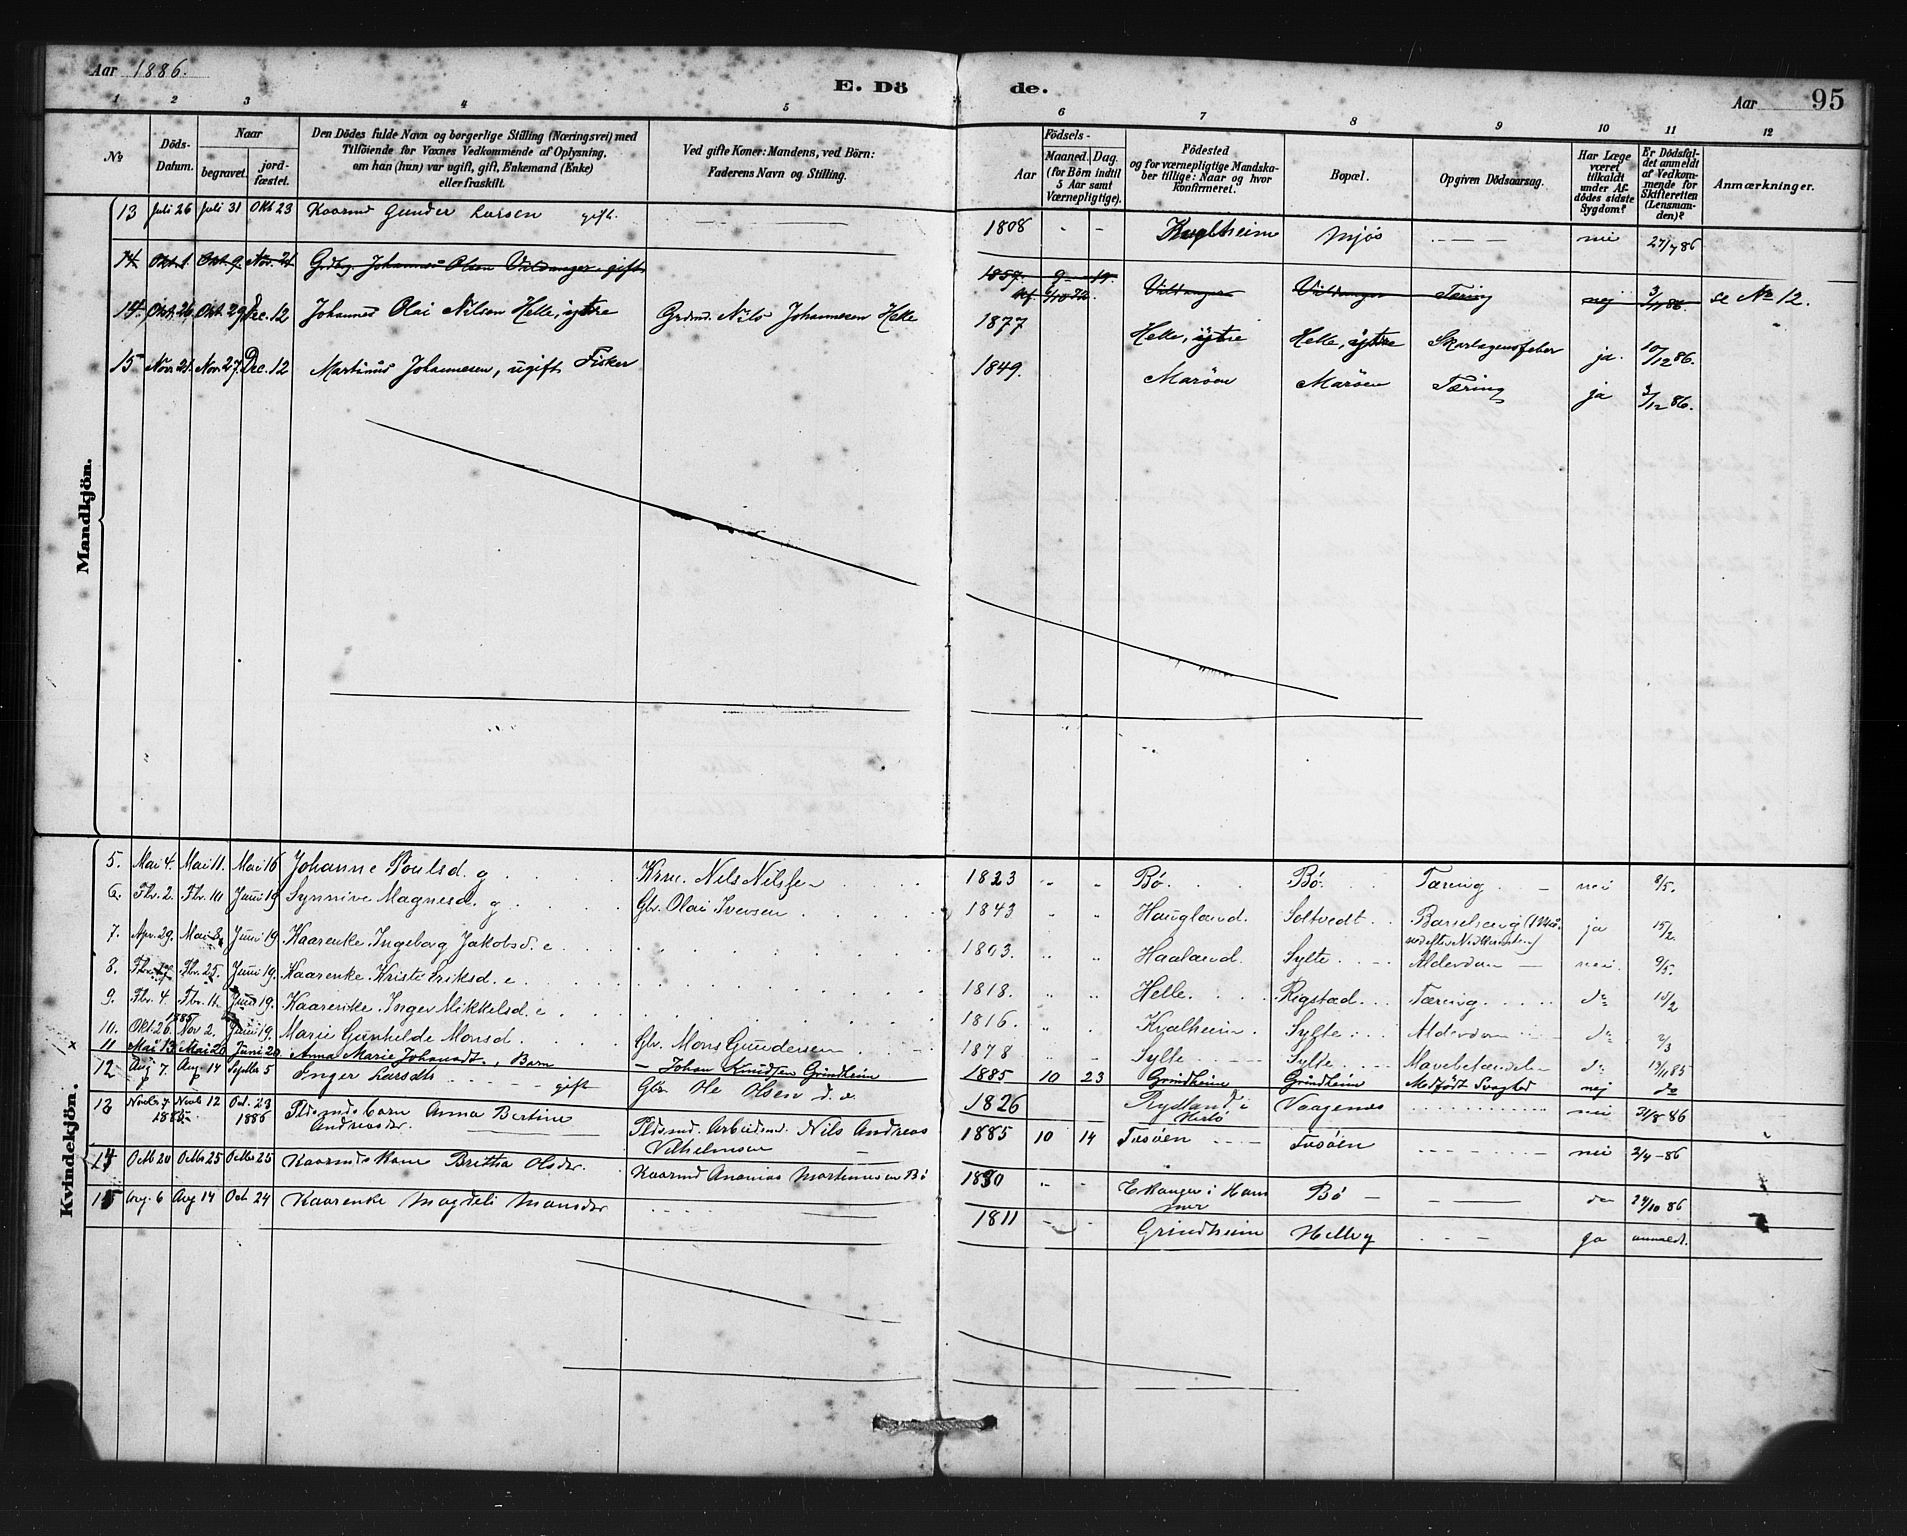 Aar 1886.
E. Dö de.
Aar 95
1 2 3 4 5 6 7 8 9 10 11 12
No
Döds-Datum.
Naar
begravet.
jord-fæstet.
Den Dödes fulde Navn og borgerlige Stilling (Næringsvei) med Tilföiende for Voxnes Vedkommende af Oplysning, om han (hun) var ugift, gift, Enkemand (Enke) eller fraskilt.
Ved gifte Koner: Mandens, ved Börn: Faderens Navn og Stilling.
Födsels-
Aar
Maaned. Dag.
(for Börn indtil 5 Aar samt Værnepligtige).
Födested og for værnepligtige Mandskaber tillige: Naar og hvor konfirmeret.
Bopæl.
Opgiven Dödsaarsag.
Har Læge været tilkaldt under Afdödes sidste Sygdom?
Er Dödsfaldet anmeldt af Vedkommende for Skifteretten (Lensmanden)?
Anmærkninger.
Mandkjön.
13 Juli 26 Juli 31 Okt 23 Kaarmd Gunder Larsen gift. 1808 - - Kvalheim Mjös - - - nei 27/7 86
14 Okt. 1 Okt. 9. Nov. 21 Grdbr. Johannes Olsen Vildanger gift 1857. 9 19. Vildanger Vildanger Tæring nej se No 12.
14 Okt. 26 Okt. 29 Dec. 12 Johannes Olai Nilsen Helle, ytre Grdmd. Nils Johannesen Helle 1877 Helle, ytre Helle, ytre Skarlagensfeber ja. 10/12 86.
15 Nov. 21. Nov. 27. Dec. 12 Martinus Johannesen, ugift Fisker 1849. Maröen Maröen Tæring ja 3/12 86.
Kvindekjön.
5. Mai 4. Mai 11. Mai 16 Johanne Poulsd. g. Krm. Nils Nilssen 1823 " " Bø. Bø. Tæring. nei 8/5.
6. Fbr. 2. Fbr. 10 Juni 19 Synnive Magnesd. g. Gbr. Olai Iversen 1843 " " Haugland. Soltvedt Barselseng ja 15/2.
7. Apr. 29. Mai 8. Juni 19. Kaarenke Ingeborg Jakobsd. e. 1803. " " Haaland. Sylte Alderdom nei. 9/5.
8. Fbr. 17. Fbr. 25. Juni 19. Kaarenke Kristi Eriksd. e. 1818. " " Helle. Rigstad. Tæring. do
9. Fbr. 4. Fbr. 11. Juni 19. Kaarenke Inger Mikkelsd. e. 1816. " " Kvalheim. Sylte. Alderdom do
10. Okt. 26. 1885 Nov 2. Juni 19. Marie Gunhilde Monsd. Gbr. Mons Gundersen 1878 - - Sylte Sylte. do
x 11 Mai 13 Mai 20 Juni 20 Anna Marie Johansdt., Barn - Johan Knudsen Grindheim 1885 10 23 Grindheim Grindheim Medfödt Svaghed nej do
12 Aug 7. Aug 14 Septbr 5 Inger Larsdtr gift Gbr. Ole Olsen d. æ. 1826 Rydland i Herlö Vaagenes nei 31/8 86
13 Novbr 7 1885 Novbr 12 Oct. 23 1886 Pldsmdsbarn Anna Bertine Andreasdr. Pldsmd. Arbeidsmd. Nils Andreas Vilhelmsen 1885 10 14 Tusöen Tusöen nei 2/4 - 86
14 Octb 20 Octbr 25 Octbr 25 Kaarmdskone Britha Olsdr. Kaarmd Ananias Mortensen Bö 1830 " - Ekanger i Hammer Bö - do 24/10 86
15 Aug. 6 Aug 14 Oct. 24 Kaarenke Magdeli Monsdr 1811 - - Grindheim Helle y ja anmeldt.